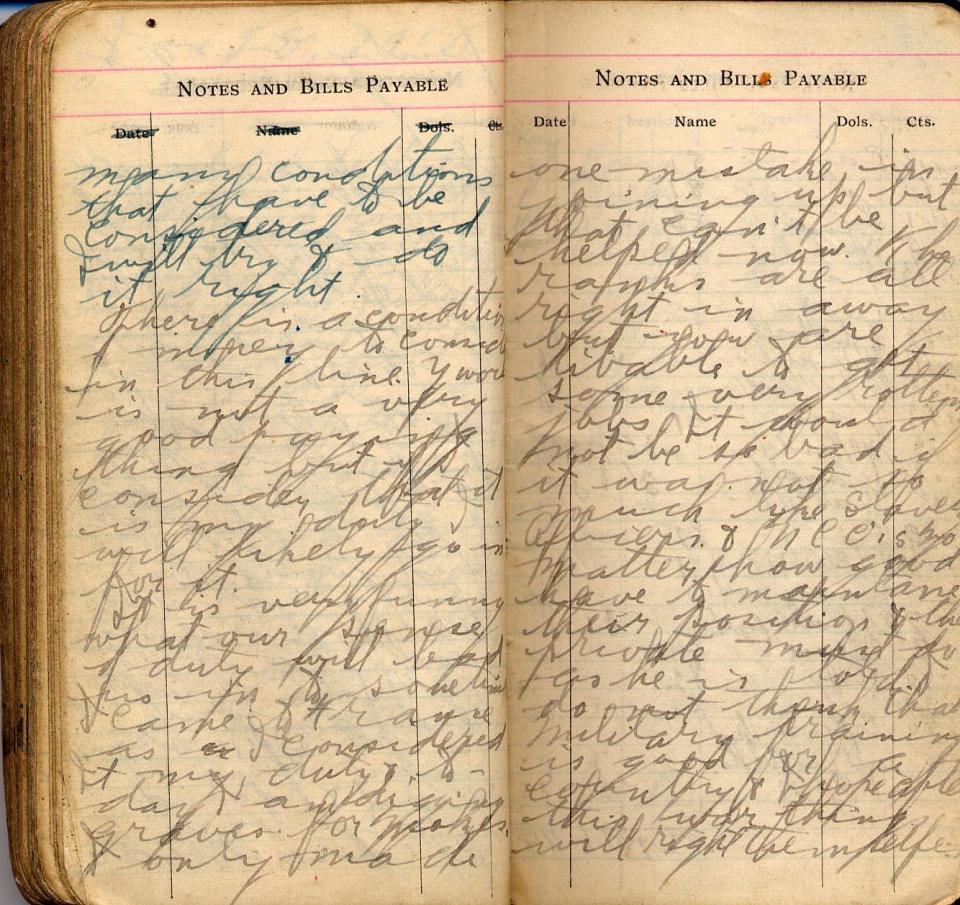 NOTES AND BILLS PAYABLE
Date Name Dols. Cts
many conditions
that have to be
considered and
I will try & do
it right
There is a condition
I money to consid
in this line. Y wor
is not a very
good paying
thing but if I
consider that it
is my duty I
will likely go in
for it.
It is very funny
what our sense
of duty will lead
us in to sometimes
I came to France
as I considered
it my duty & to-
day I am digging
graves. For
I only made
NOTES AND BILLS PAYABLE
Date Name Dols. Cts.
one mistake in
joining up but
that can't be
helped now. The
ranks are all
right in away
but you are
liable to get
some very rotten
jobs. It would
not be so bad if
it was not so
much like slavery
Officers & N C O's no
matter how good
have to maintane
their position & the
private must do
as he is told. I
do not think that
military training
is good for a
country & I hope after
this war things
will right themselfe